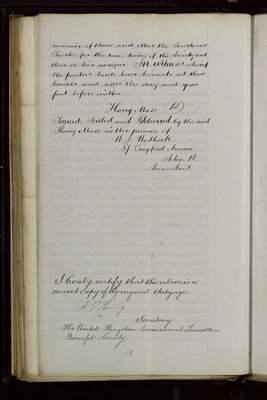 survivor of them and other the Trustees or
Trustee for the time being of the Society and
their or his assigns In witness whereof
the parties hereto have hereunto set their
hands and seals the day and year
first before written
Henry Mase (LS)
Signed Sealed and Delivered by the said
Henry Mase in the presence of
37 Avenue
Acton W.
Accountant
I hereby certify that the above is a
correct copy of the original Mortgage
Secretary
The United Kingdom Commercial Travellers
Benefit Society